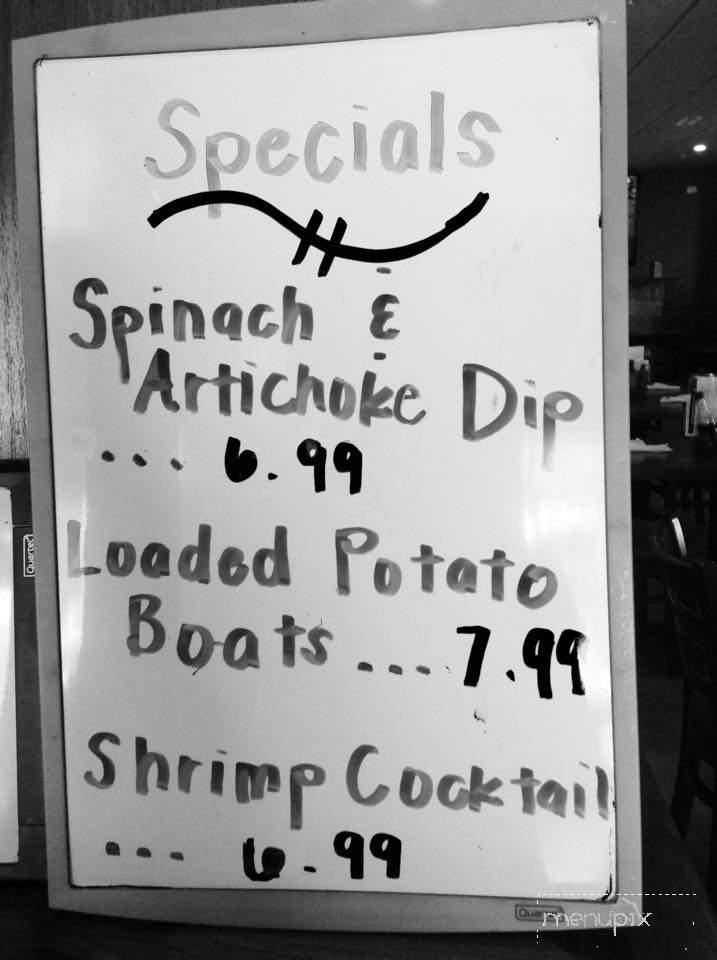 Specials
Spinach &
Artichoke Dip
... 6.99
Loaded Potato
Boats .... 7.99
Shrimp Cocktail
... 6.99
Quartet
Quartet
menupix